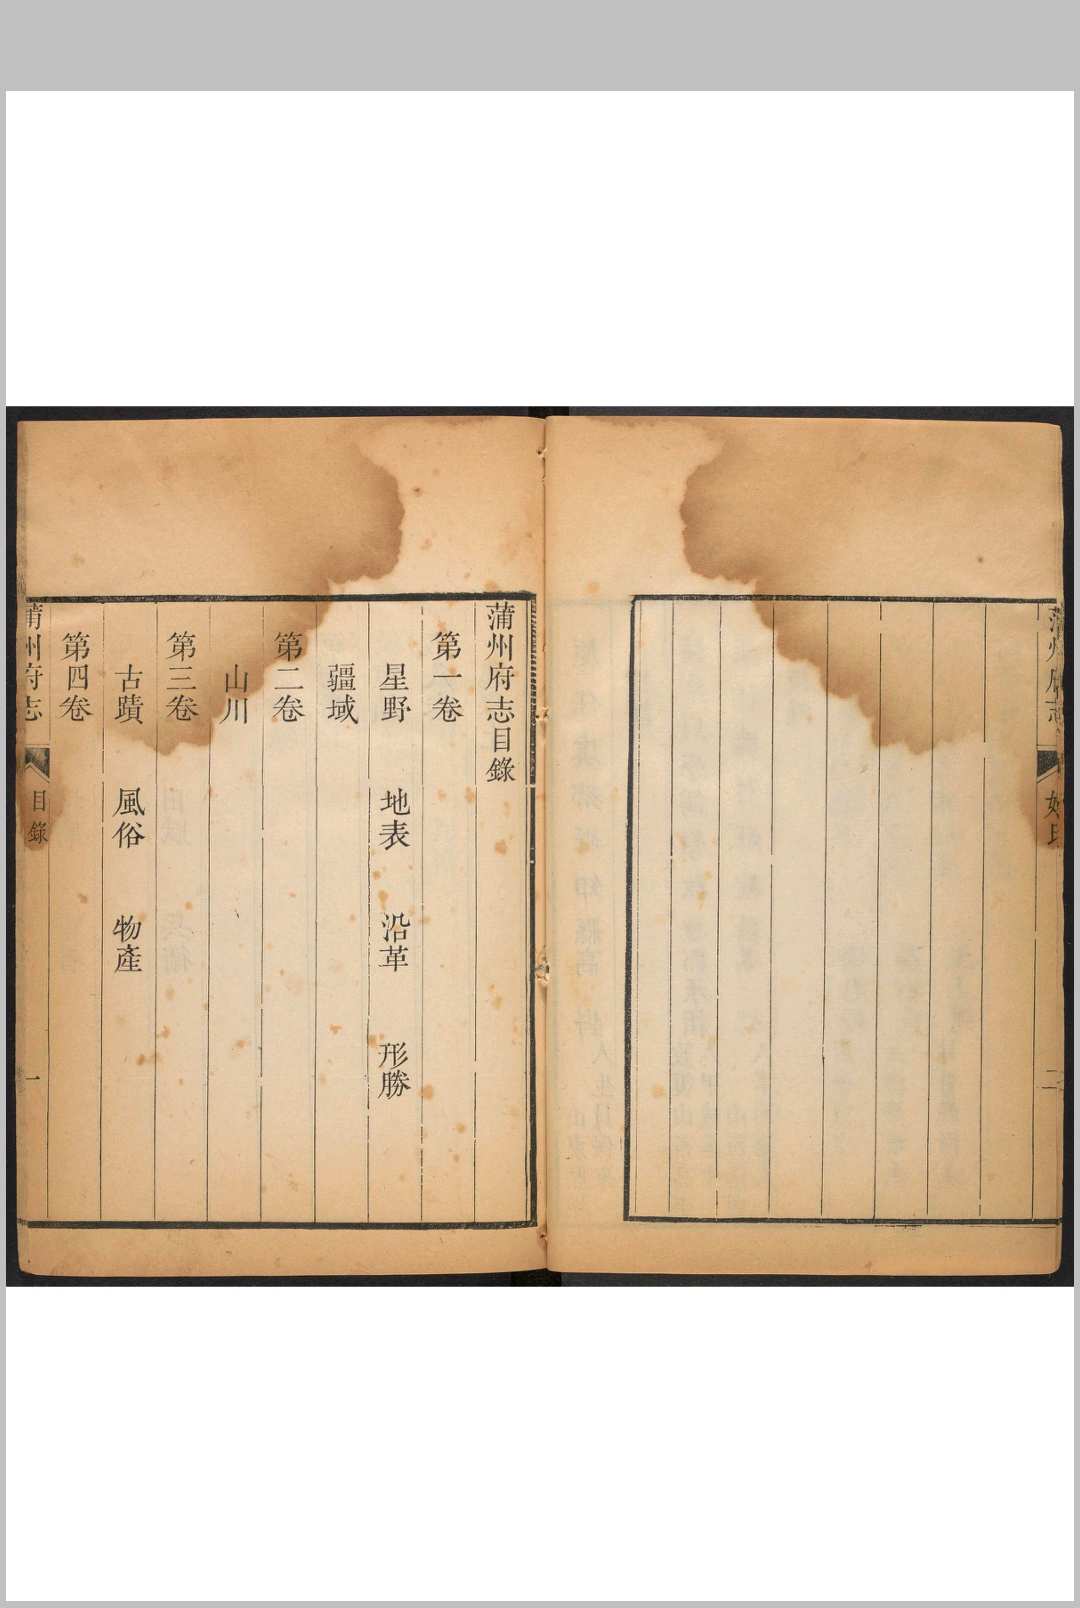 蒲州府志
姓氏
二
蒲州府志目錄
第一卷
星野 地表 沿革 形勝
疆域
第二卷
山川
第三卷
古蹟 風俗 物產
第四卷
蒲州府志
目錄
一